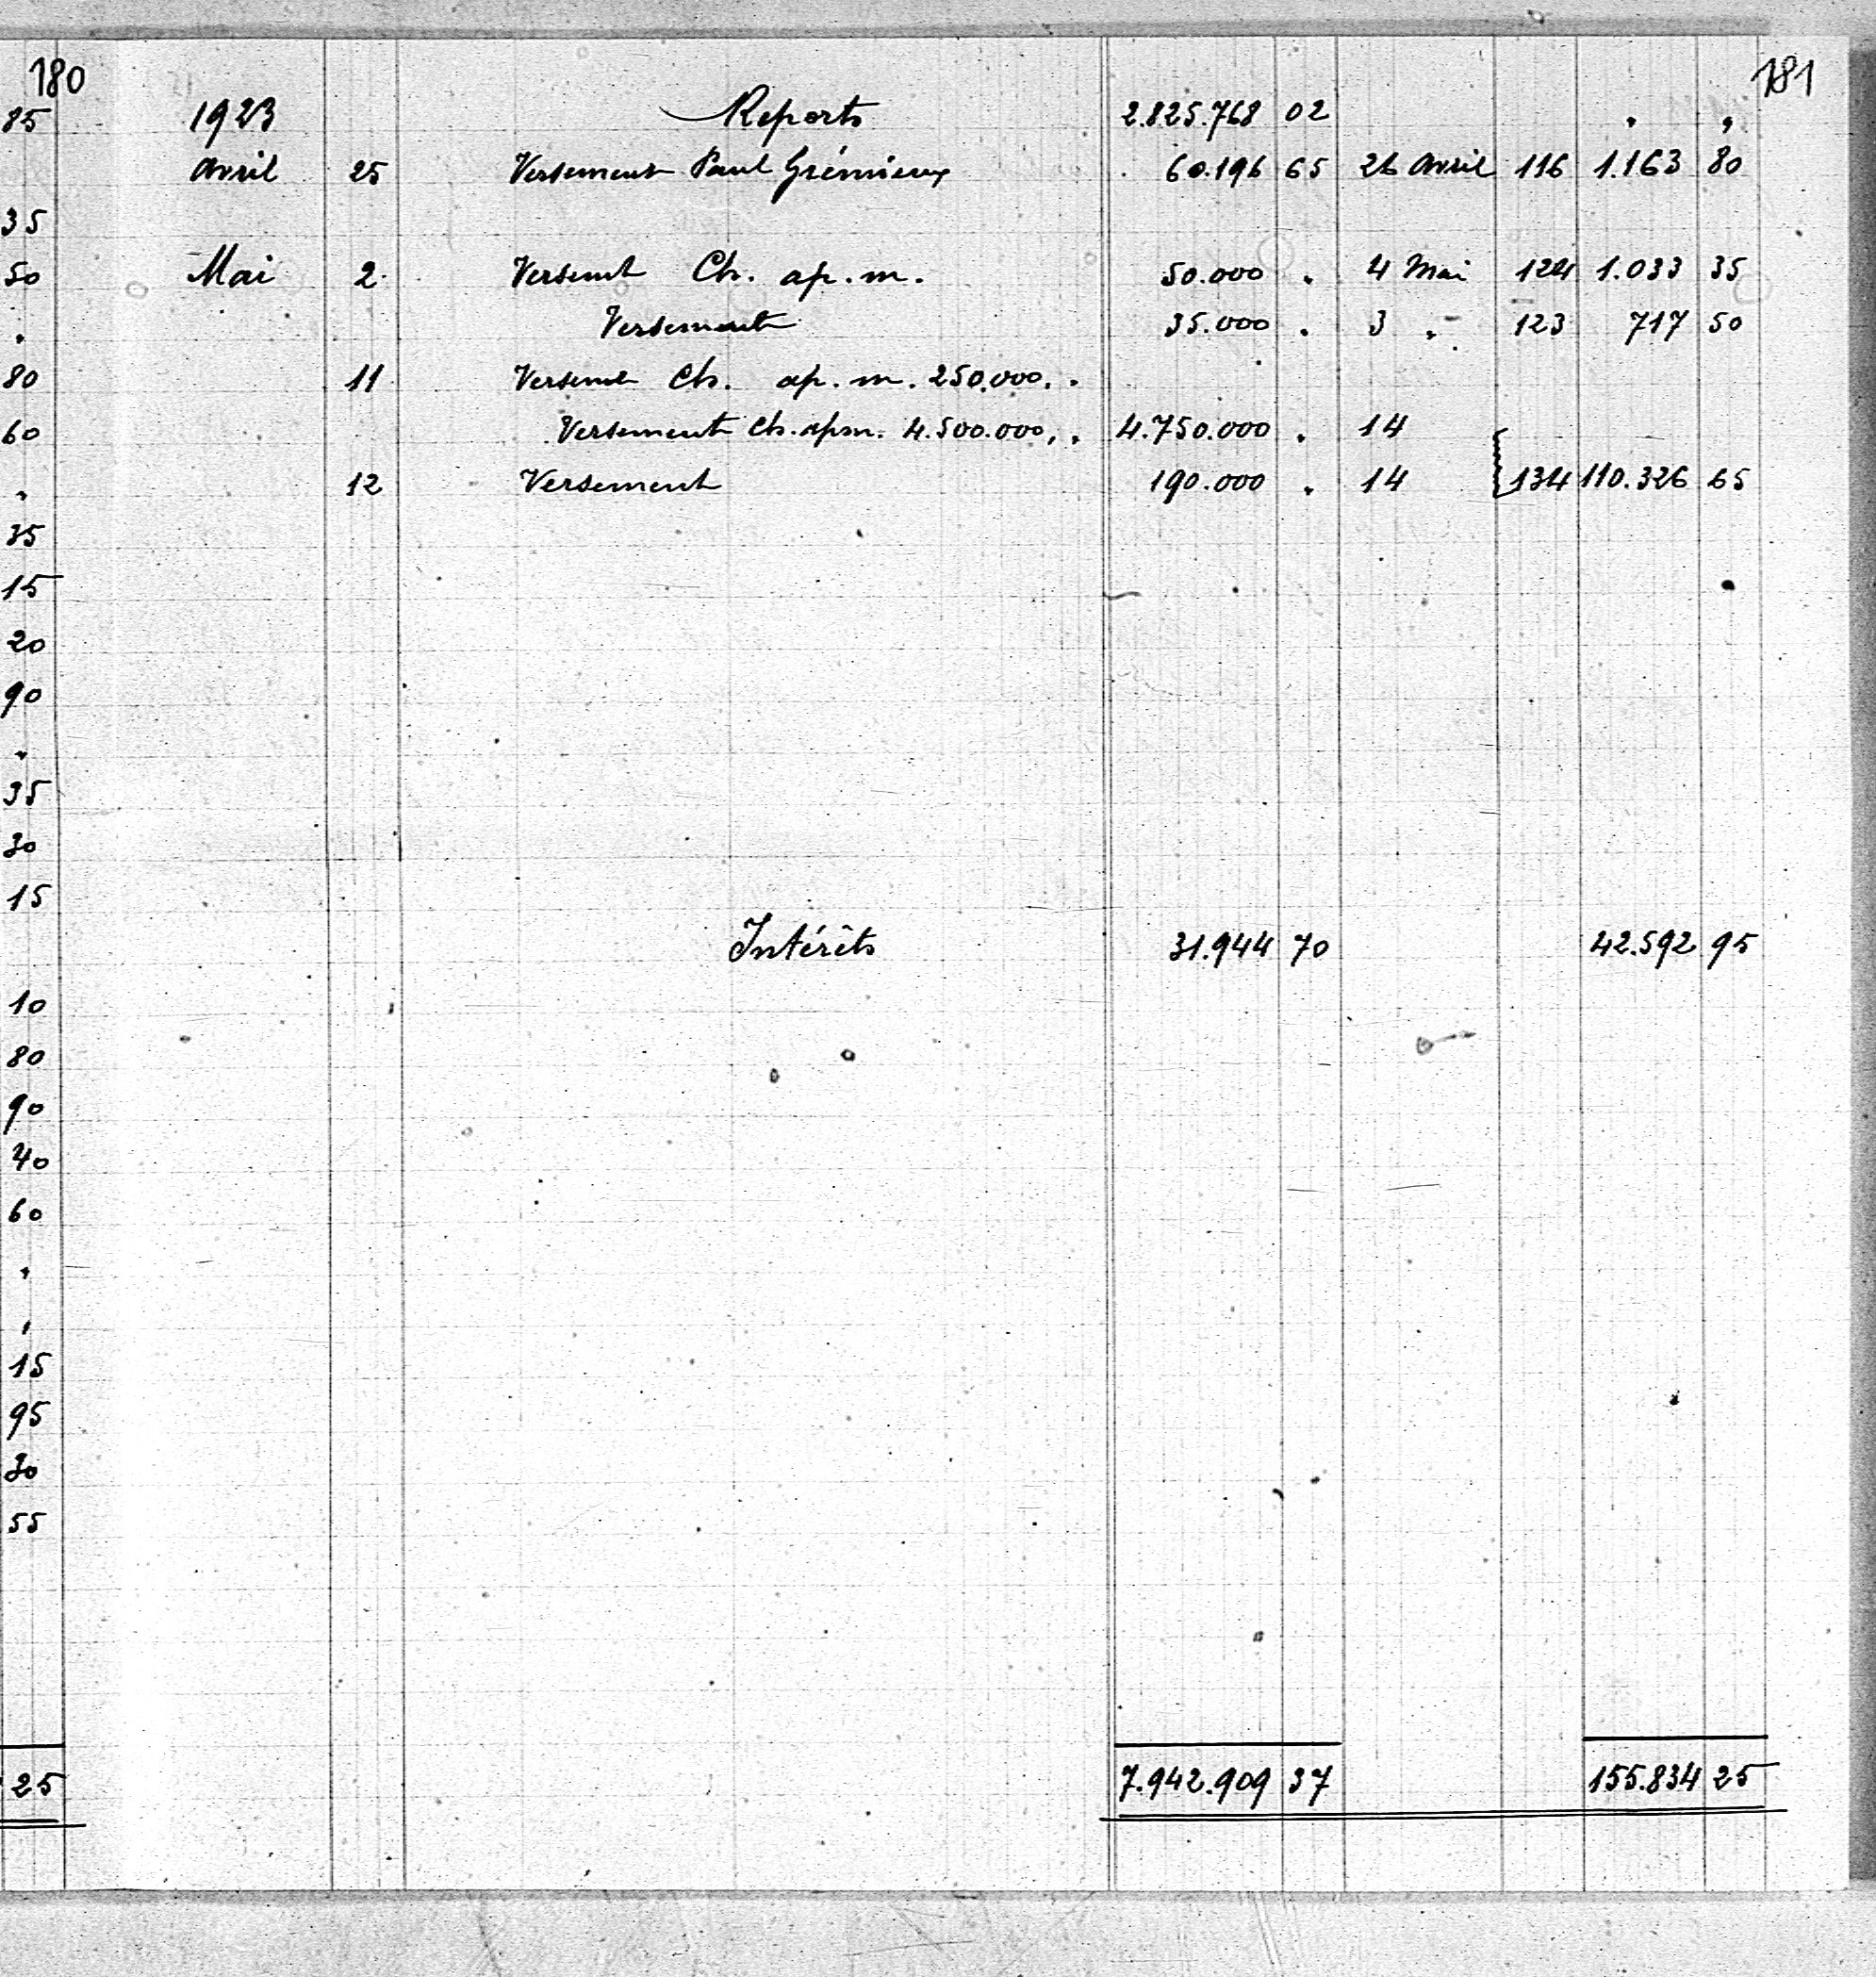 180
181
85 1923 Reports 2.825.768 02 " "
Avril 25 Versement Paul Grémieux 60.196 65 26 Avril 116 1.163 80
35
50 Mai 2 Versemt Ch. ap. m. 50.000 . 4 Mai 124 1.033 35
. Versement 35.000 . 3 " 123 717 50
80 11 Versemt Ch. ap. m. 250.000, .
60 Versement Ch. ap m. 4.500.000, . 4.750.000 . 14
" 12 Versement 190.000 . 14 134 110.326 65
35
15
20
90
"
35
30
15 Intérêts 31.944 70 42.592 95
10
80
90
40
60
"
"
15
95
30
55
25 7.942.909 37 155.834 25